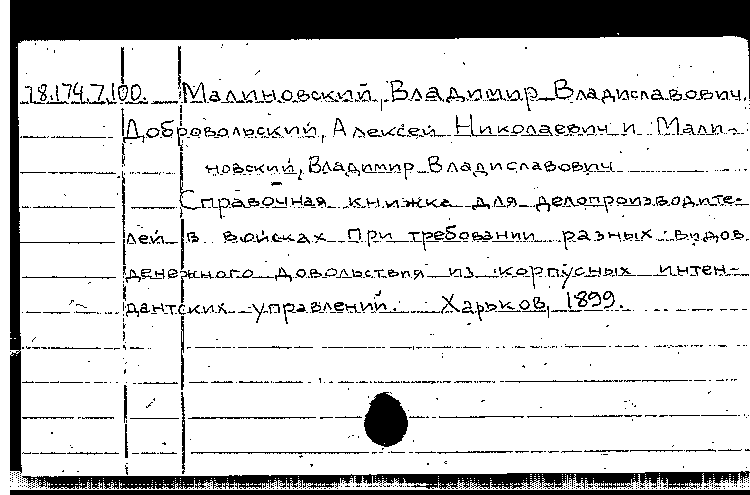 18.174.7.100. Малиновский, Владимир Владиславович,
Добровольский, Алексей Николаевич и Мали-
новский, Владимир Владиславович
Справочная книжка для делопроизводите-
лей в войсках при требовании разных видов
денежного довольствия из корпусных интен-
дантских управлений. Харьков, 1899.